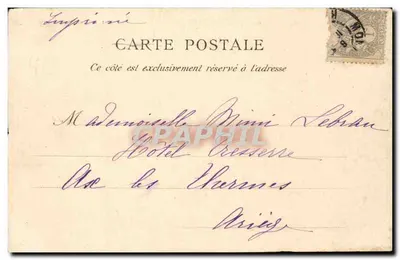 Imprimé
CARTE POSTALE
Ce côté est exclusivement réservé à l'adresse
Mademoiselle Mimi Lebrau
Hôtel Cresserre
Ax les Thermes
Ariège
CPAPHIL